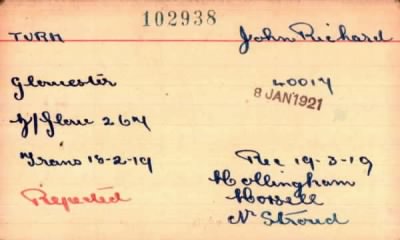 102938
TURK John Richard
Gloucester 40017
8 JAN 1921
G/Glouc 267
Trans 18-2-19 Rec 19-3-19
Rejected Hollingham
Horsell
Nr Stroud